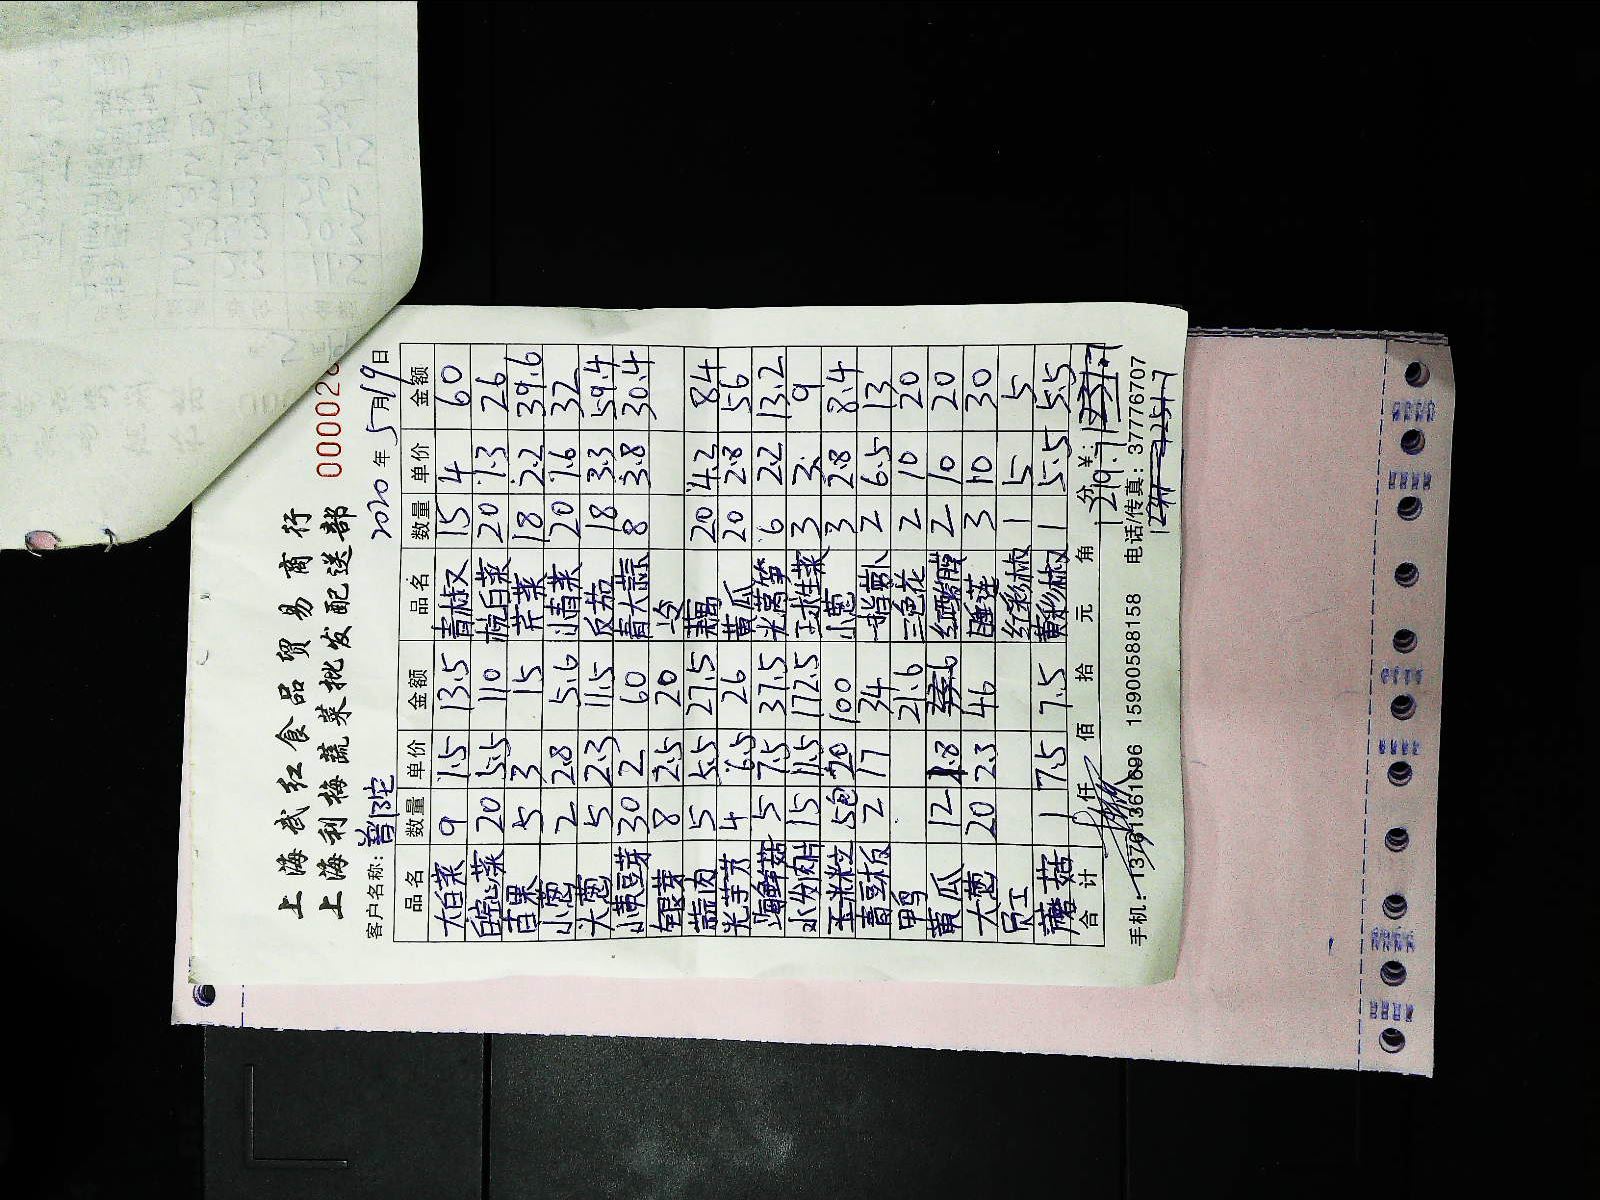 上海武红食品贸易商行
上海利梅蔬菜批发配送部
00002
客户名称: 普陀 2020年5月19日
品名 数量 单价 金额 品名 数量 单价 金额
大白菜 9 1.5 13.5 青椒 15 4 60
空心菜 20 5.5 110 杭白菜 20 1.3 26
苦果 5 3 15 芹菜 18 2.2 39.6
小葱 2 2.8 5.6 小青菜 20 1.6 32
大葱 5 2.3 11.5 反茄 18 3.3 59.4
小黄豆芽 30 2 60 青大蒜 8 3.8 30.4
银芽 8 2.5 20
蒜肉 5 5.5 27.5 藕 20 4.2 84
光芋艿 4 6.5 26 黄瓜 20 2.8 56
海鲜菇 5 7.5 37.5 光莴笋 6 2.2 13.2
水发肉片 15 11.5 172.5 球生菜 3 3 9
玉米粒 5包 20 100 小葱 3 2.8 8.4
青豆板 2 17 34 指萝卜 2 6.5 13
21.6 三色花 2 10 20
黄瓜 12 1.8 红西绸 2 10 20
大葱 20 2.3 46 睡莲 3 10 30
员工 红彩椒 1 5 5
蘑菇 1 7.5 7.5 黄彩椒 1 5.5 5.5
合计 仟 佰 拾 元 角 分 ¥:
手机: 13761361696 15900588158 电话/传真: 37776707